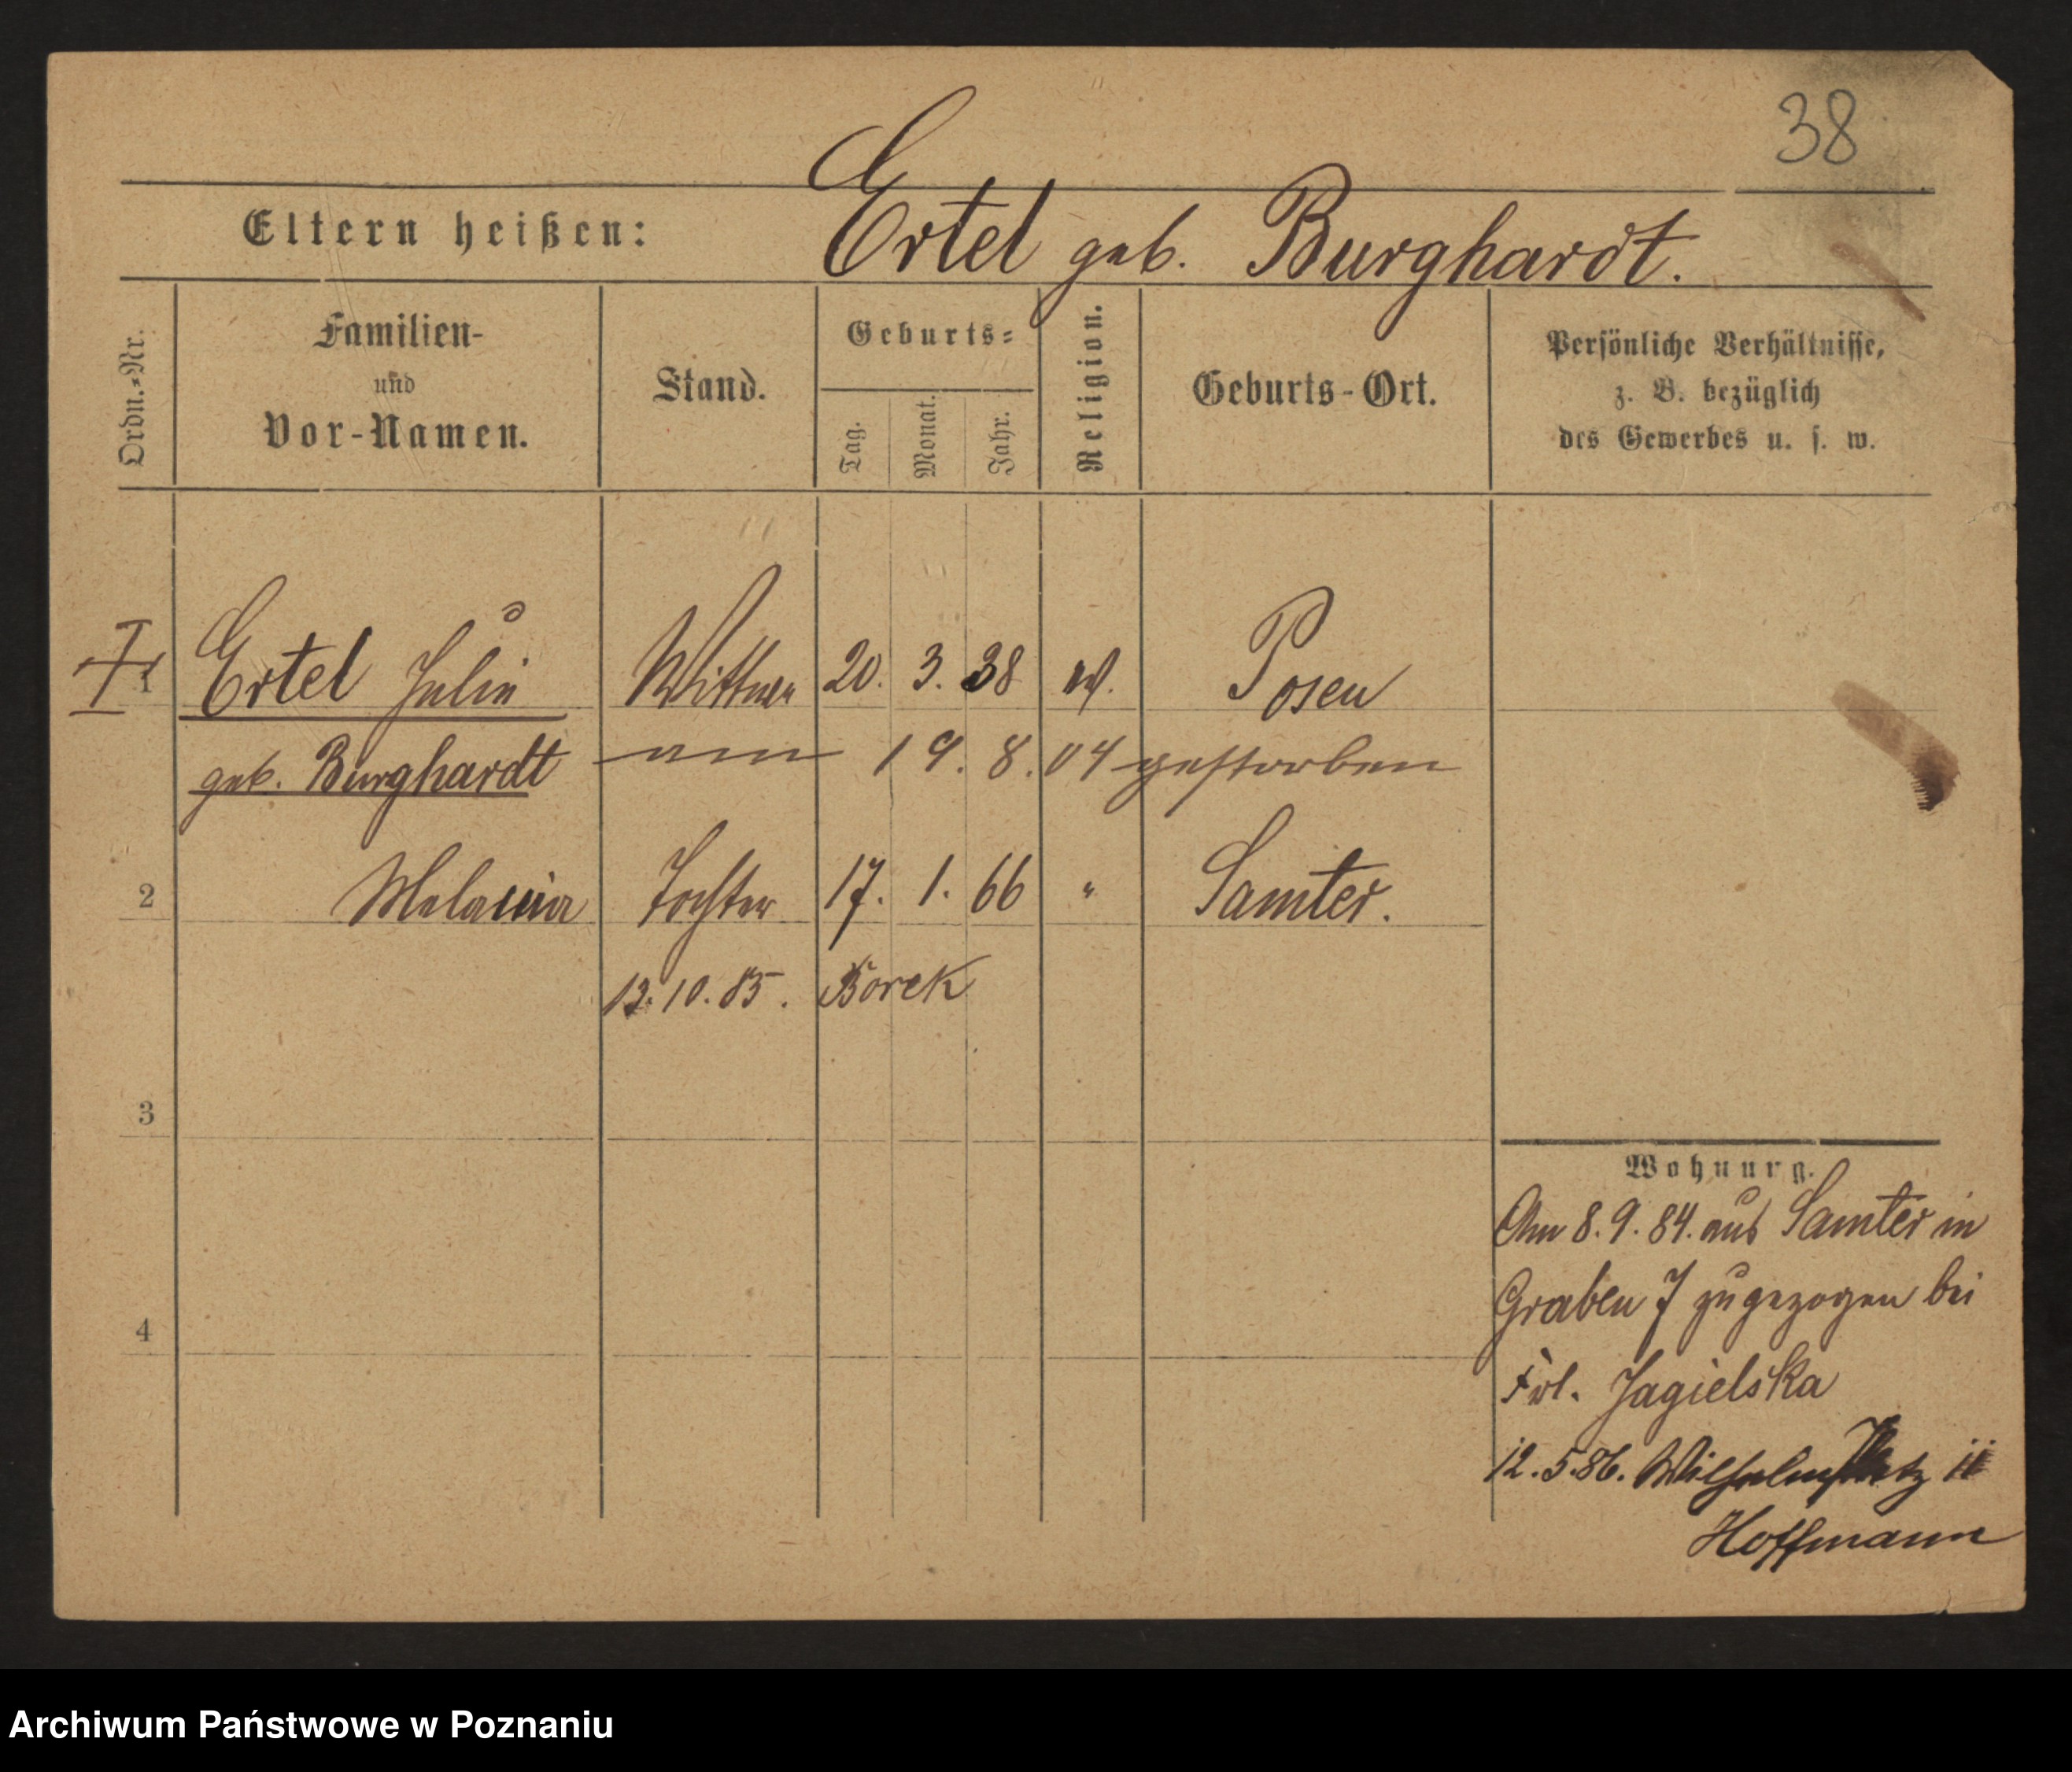 38
Eltern heißen: Ertel geb. Burghardt.
Ordn.-Nr.
Familien-
und
Vor-Namen.
Stand.
Geburts-
Tag. Monat. Jahr.
Religion.
Geburts-Ort.
Persönliche Verhältnisse,
z. B. bezüglich
des Gewerbes u. s. w.
1 Ertel Julie Wittwe 20. 3. 38 Posen
geb. Burghardt am 19. 8. 04 gestorben
2 Melania Tochter 17. 1. 66 " Samter.
12.10.85. Borek
3
4
Wohnung.
Am 8. 9. 84. aus Samter in
Graben 7 zugezogen bei
Frl. Jagielska
12.5.86. Wilhelmsplatz
Hoffmann
Archiwum Państwowe w Poznaniu